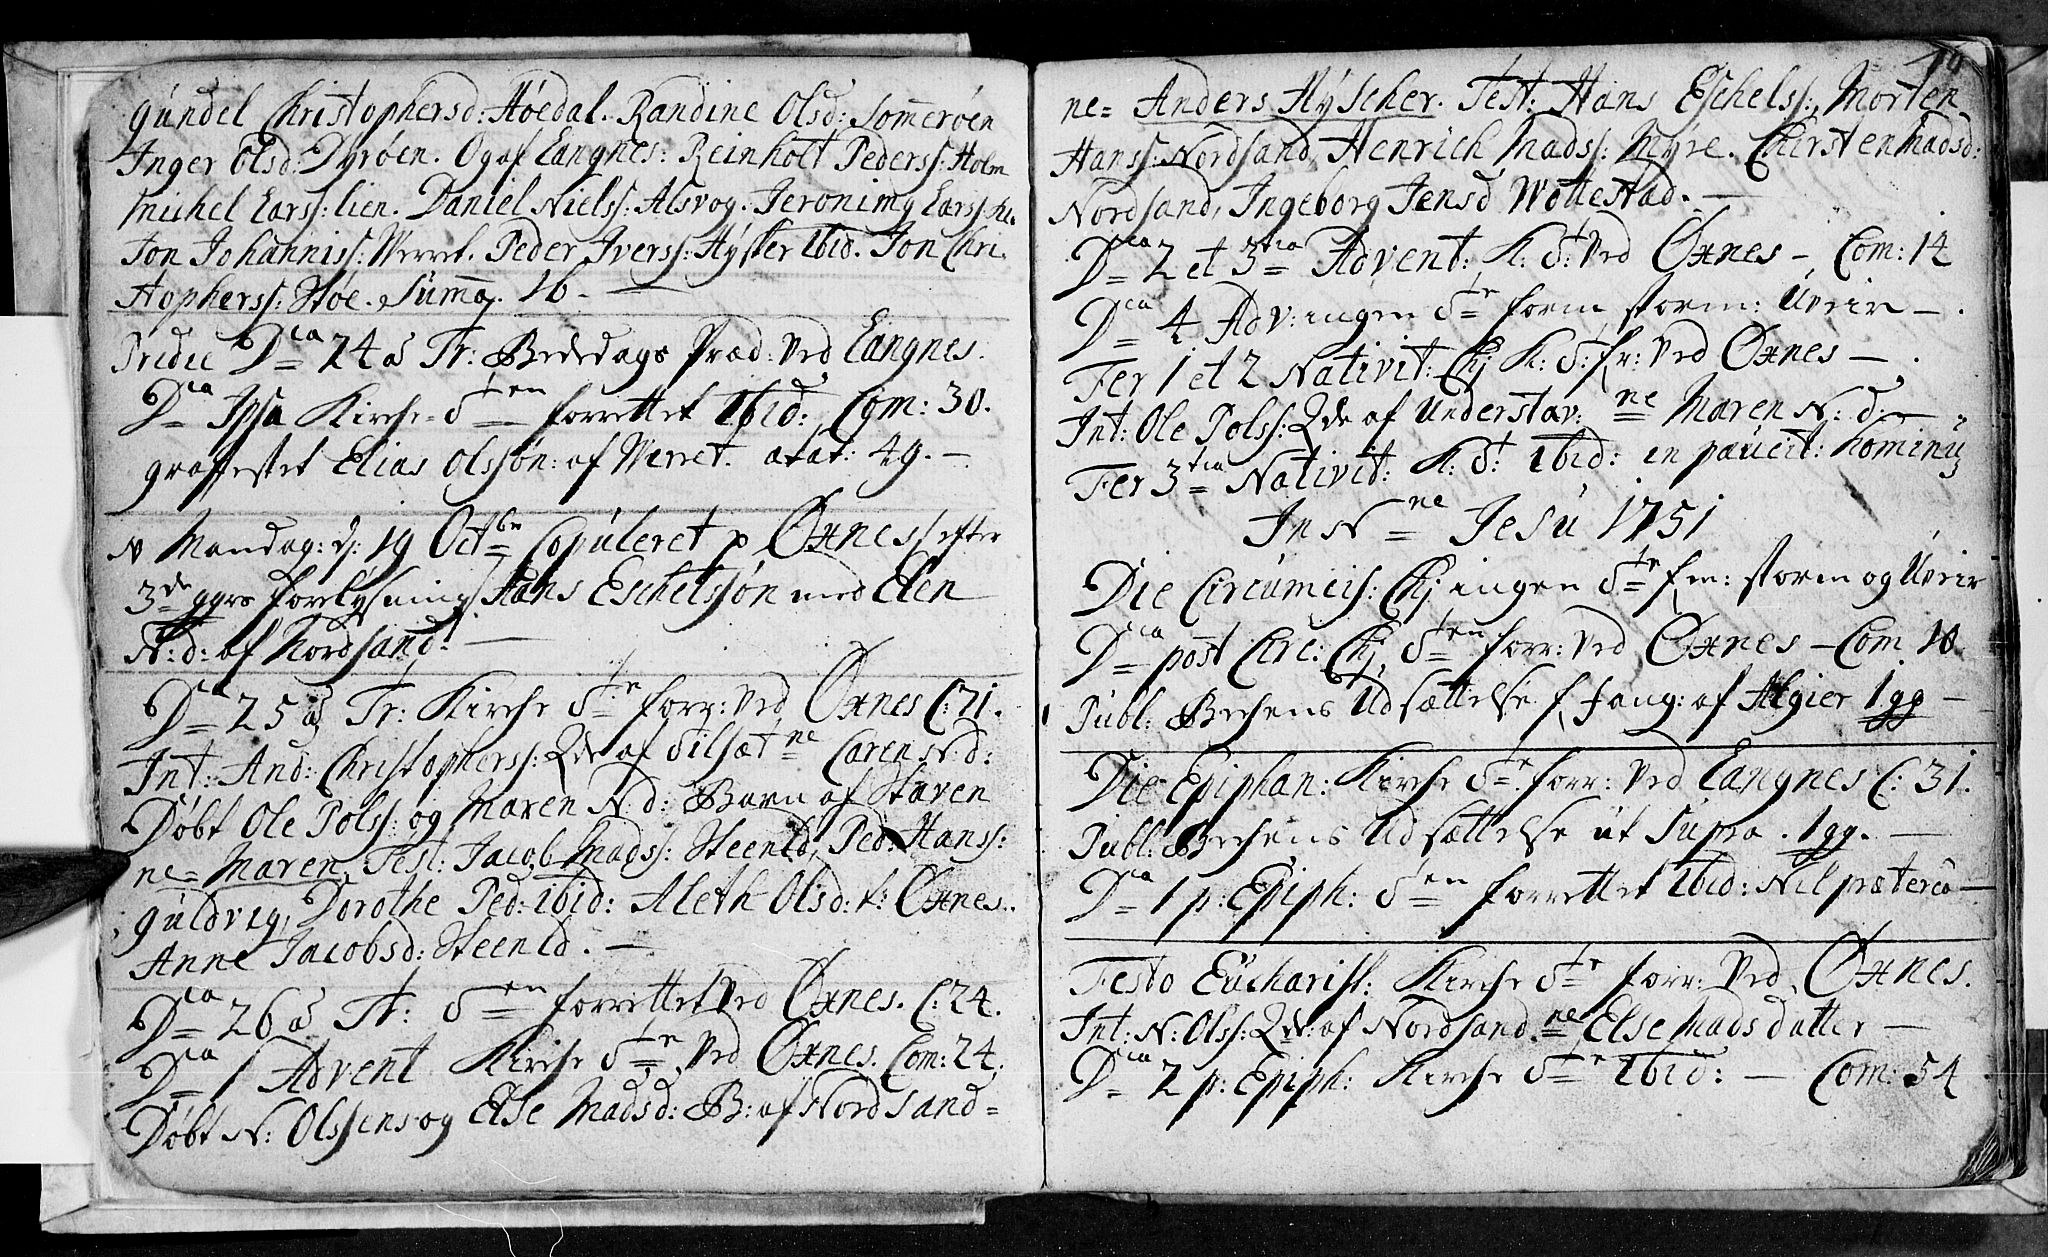 Gundel Christophersd: Høedal. Randine Olsd: Somerøen
Inger Olsd: Dyrøen. Og af Langnes: Reinholt Peders: Holm
Michel Larss: Lien. Daniel Nielss: Alsvog. Jeronimy Larss:
Jon Johanniss: Werret. Peder Iverss: Hyster Ibid. Jon Chri-
stophers: Støe. Suma. 16. —
Pridie Dca 24 à Tr: Bededags Præd: ved Langnes.
Dca Ipsa Kirche-Tten forrettet Ibid: Com: 30.
graffestet Elias Olssøn: af Werret. ætat: 49. —
N Mandag: d: 19 Octbr Copuleret p Øxnes /efter
3de ggrs forelysning/ Hans Eschelssøn med Elen
N: d: af Nordsand: —
Dca 25 à Tr: Kirche Tte forr: ved Øxnes C: 71.
Int: And: Christophers: Qde af Tilsæt ne Caren N: d:
Døbt Ole Polss: og Maren N: d: Barn af Staven
ne= Maren. Test: Jacob Madss: Steenld, Ped: Hanss:
Guldvig, Dorothe Ped: ibid: Aleth Olsd: f: Øxnes.
Anne Jacobsd: Steenld. —
Dca 26 à Tr: Tten forrettet ved Øxnes. C: 24.
Dca 1 Advent Kirche Tten ved Øxnes. Com: 24.
Døbt N: Olssens og Else Madsd: B: af Nordsand=
19
ne= Anders Hyscher. Test: Hans Eschelss:, Morten
Hanss: Nordsand, Henrich Madss: Myre. Chirsten Madsd:
Nordsand, Ingeborg Jensd Wottestad. —
Dca 2 et 3tia Advent: K: T: ved Øxnes — Com: 12
Dca 4 Adv: ingen Tte form storm: Uveir —.
Fer 1 et 2 Nativit: Chj K: T: fr: ved Øxnes —.
Int: Ole Polss: Qde af Understav: ne Maren N: d: —
Fer 3tia Nativit: K: T: ibid: in paucit: hominu
In Nne Jesu 1751
Die Circumcis: Chj ingen Tte fm: storm og Uveir
Dca post Circ: Chj Tten forr: ved Øxnes — Com 10
Publ: Bechens Udsættelse f. fang: af Algier 1 gg —
Die Epiphan: Kirche Tte forr: ved Langnes C: 31.
Publ: Bechens Udsættelse ut Supra. 1 gg. —
Dca 1 p: Epiph: Tten forrettet ibid: Nil præterea —
Festo Eucharist: Kirche Tte forr: ved Øxnes.
Int: N: Olss: Qde: af Nordsand. ne Else Madsdatter —
Dca 2 p: Epiph: Kirche Tte ibid: — Com: 54